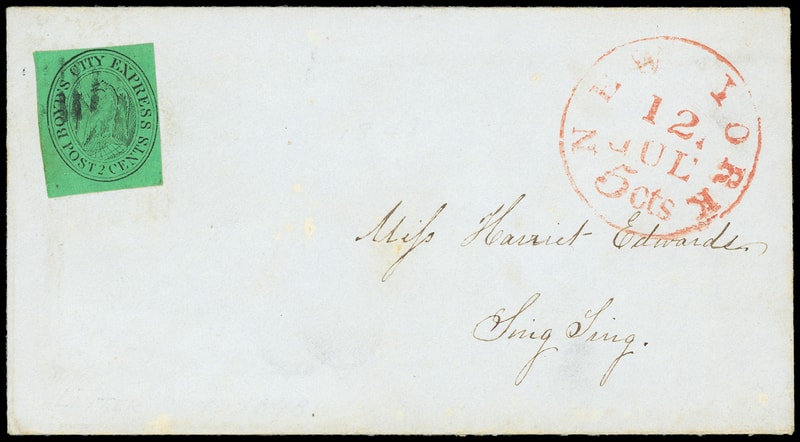 BOYD'S CITY EXPRESS
POST 2 CENTS
NEW YORK
12
JUL
5cts
Miſs Harriet Edwards
Sing Sing.